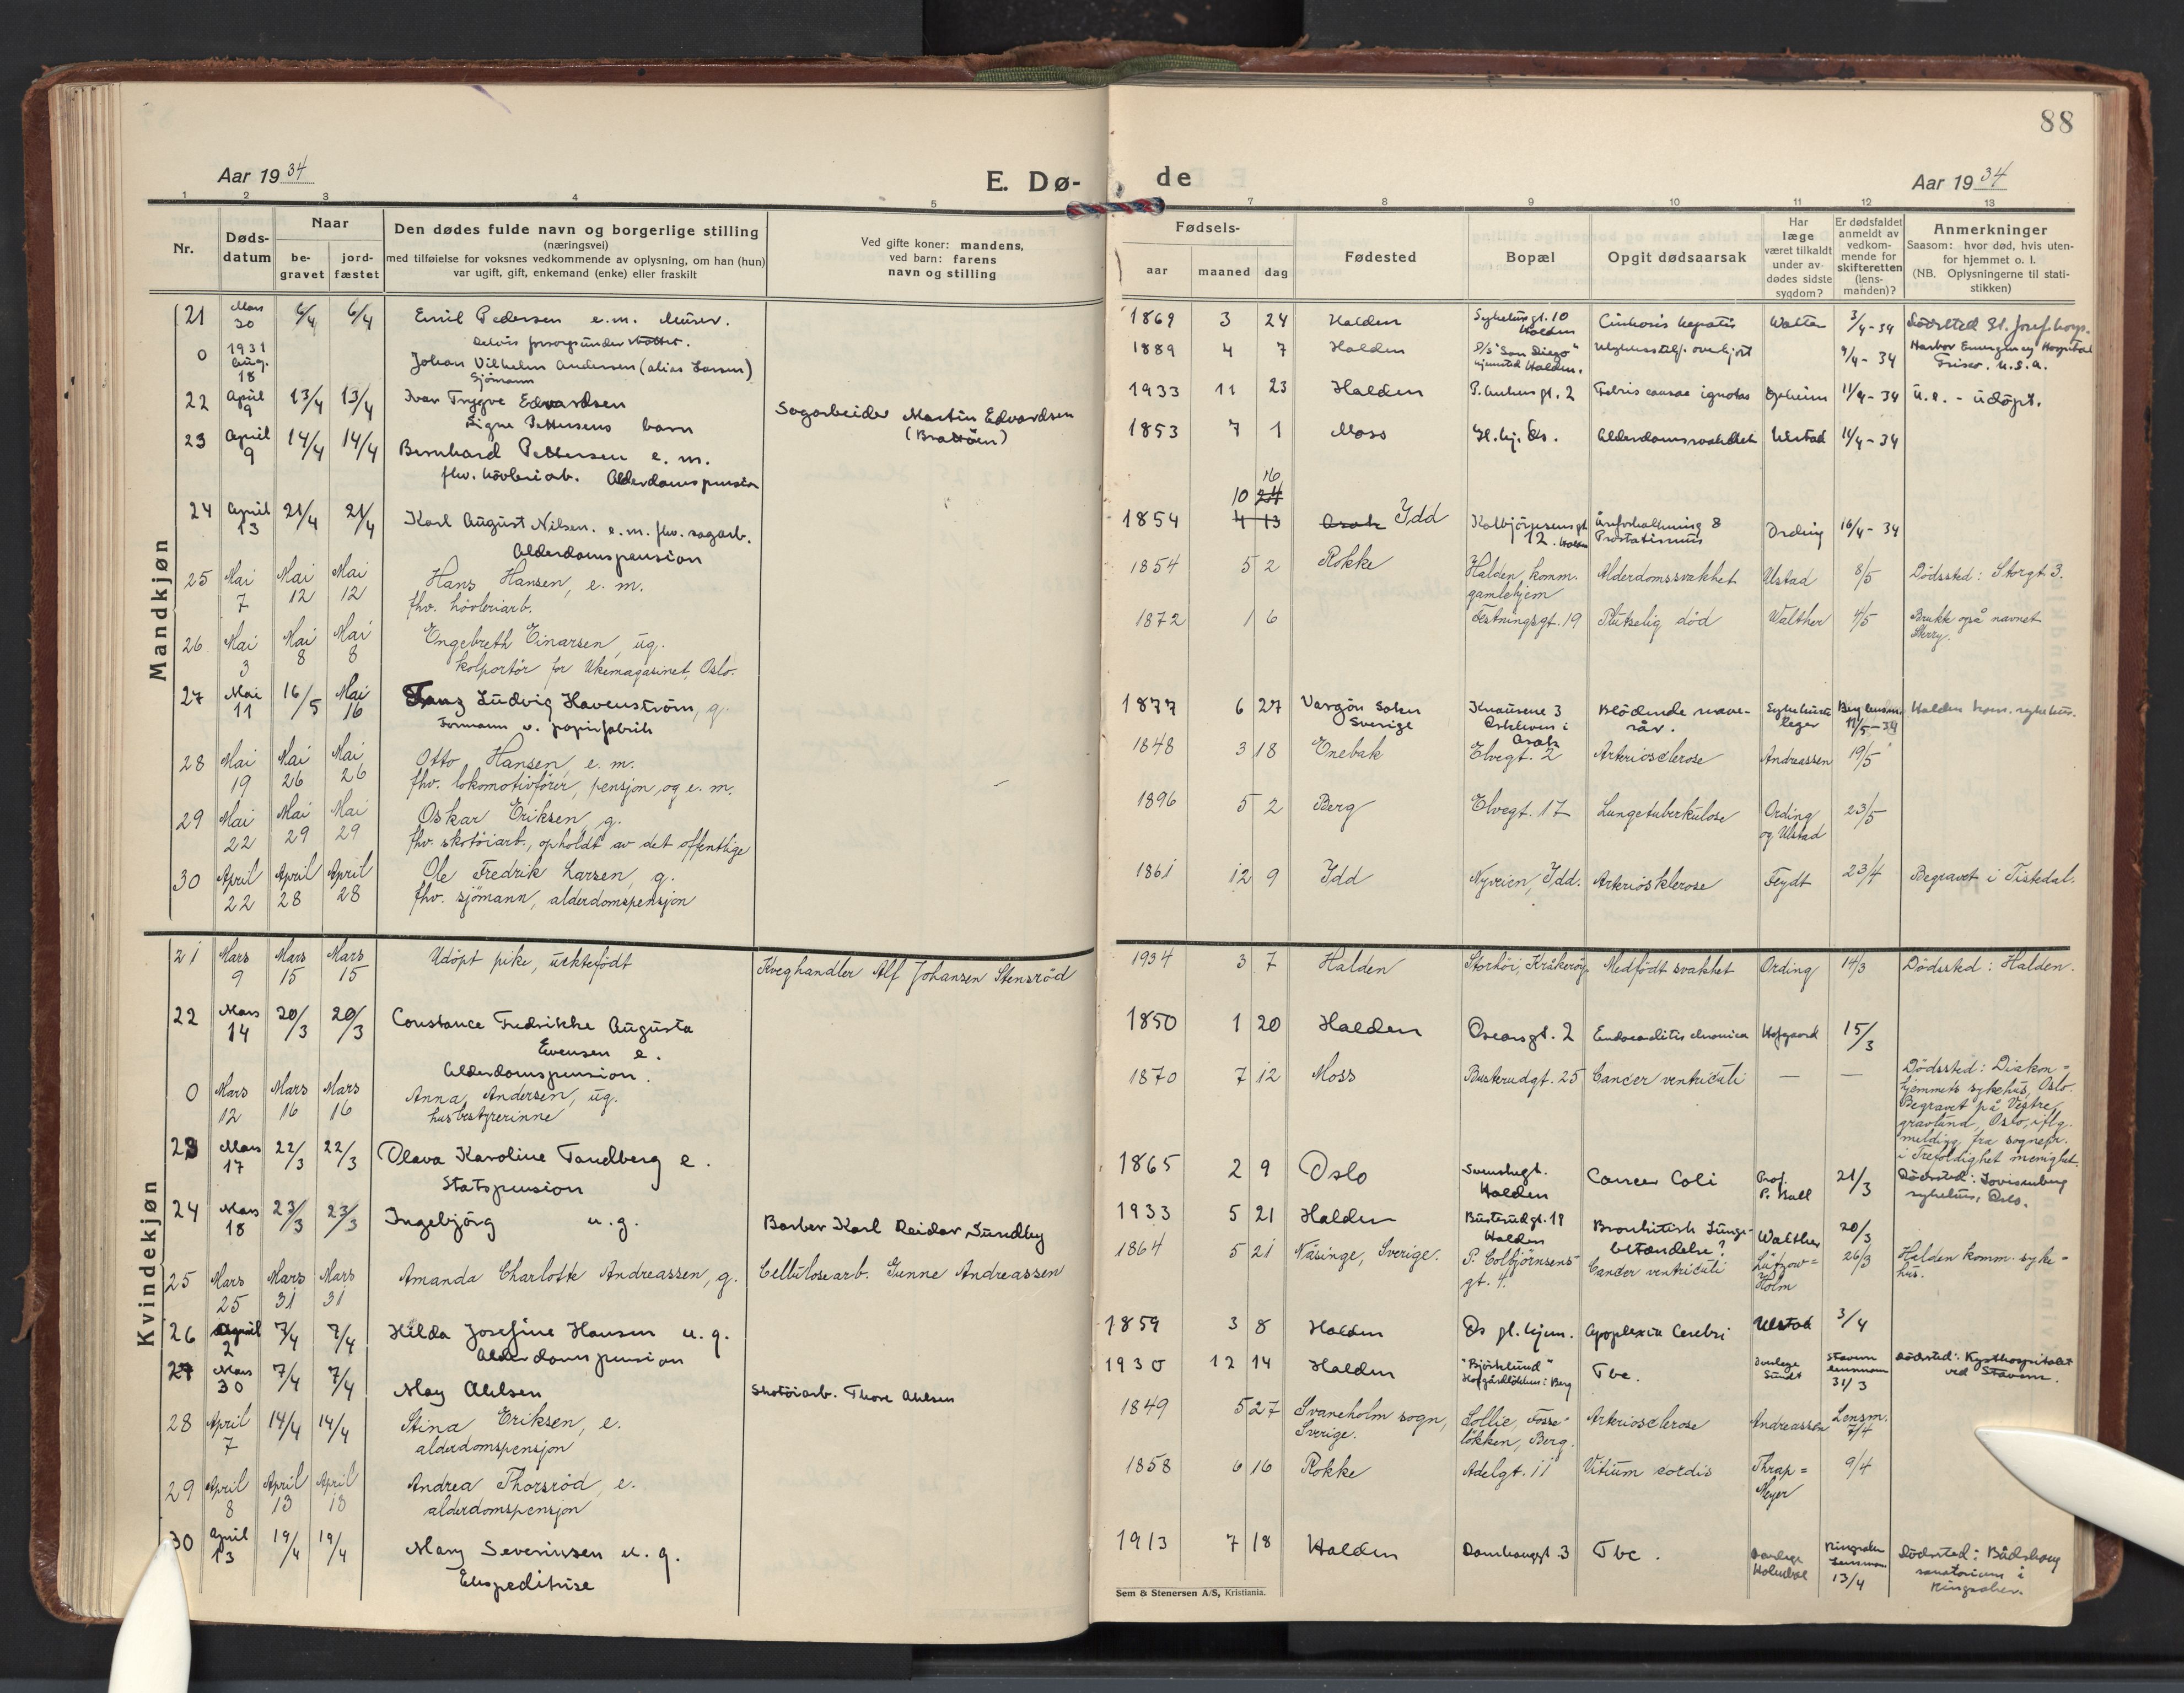 88
Aar 1934 E. Dø- de Aar 1934
1 2 3 4 5 7 8 9 10 11 12 13
Nr. Døds-datum Naar be-gravet jord-fæstet Den dødes fulde navn og borgerlige stilling (næringsvei) med tilføielse for voksnes vedkommende av oplysning, om han (hun) var ugift, gift, enkemand (enke) eller fraskilt Ved gifte koner: mandens, ved barn: farens navn og stilling Fødsels- aar maaned dag Fødested Bopæl Opgit dødsaarsak Har læge været tilkaldt under av-dødes sidste sygdom? Er dødsfaldet anmeldt av vedkom-mende for skifteretten (lens-manden)? Anmerkninger Saasom: hvor død, hvis uten-for hjemmet o. l. (NB. Oplysningerne til stati-stikken)
Mandkjøn
21 Mars 30 6/4 6/4 Emil Pedersen e.m. Murer. 1869 3 24 Halden Sykehusgt. 10 Halden Cirrhosis hepatis Walter 3/4-34 Dödssted St. Josef hosp.
0 1931 Aug. 18 Johan Vilhelm Andersen (alias Larsen) Sjömann 1889 4 7 Halden D/S "San Diego" hjemsted Halden. 9/4-34 Harbor Emergency Hospital Frisco. U.S.A.
22 April 9 13/4 13/4 Ivar Trygve Edvardsen Signe Pettersens barn Sagarbeider Martin Edvardsen (Brattöen) 1933 11 23 Halden P. Ankers gt. 2 Febris causae ignotas Opheim 11/4-34 u.e. - udöpt.
23 April 9 14/4 14/4 Bernhard Pettersen e. m. fhv. hövleriarb. Alderdomspension 1853 7 1 Moss Gl. hj. Os. Alderdomssvakhet Ulstad 11/4-34
24 April 13 21/4 21/4 Karl August Nilsen. e.m. fhv. sagarb. Alderdomspension 1854 4 13 10 24 16 Asak Idd Kolbjörnsensgt 12. Halden Urinforholdning & Prostatismus Ording 16/4-34
25 Mai 7 Mai 12 Mai 12 Hans Hansen, e. m. fhv. hövleriarb. 1854 5 2 Rokke Halden komm. gamlehjem Alderdomssvakhet Ulstad 8/5 Dödssted: Storgt. 3.
26 Mai 3 Mai 8 Mai 8 Engebreth Einarsen, ug. kolportör for Ukemagasinet, Oslo. 1872 1 6 Festningsgt. 19 Plutselig död Walther 4/5 Brukk også navnet Skrry.
27 Mai 11 16/5 Mai 16 Franz Ludvig Havenström, g. Formann v. papirfabrik 1877 6 27 Vargön Sokn Sverige Knausene 3 Oskleven i Asak Blödende mave-sår. Sykehusets leger 11/5-34 Halden kom. sykehus.
28 Mai 19 Mai 26 Mai 26 Otto Hansen, e. m. fhv. lokomotivförer, pensjon, og e. m. 1848 3 18 Enebak Elvegt. 2 Arteriosclerose Andreassen 19/5
29 Mai 22 Mai 29 Mai 29 Oskar Eriksen, g. fhv. skotöiarb., opholdt av det offentlige 1896 5 2 Berg Elvegt. 17 Lungetuberkulose Ording og Ulstad 23/5
30 April 22 April 28 April 28 Ole Fredrik Larsen, g. fhv. sjömann, alderdomspensjon 1861 12 9 Idd Nyveien, Idd. Arteriosklerose Feydt 23/4 Begravet i Tistedal.
Kvindekjøn
21 Mars 9 Mars 15 Mars 15 Udöpt pike, uektefödt Kveghandler Alf Johansen Stensröd 1934 3 7 Halden Storhöi, Kråkeröy Medfödt svakhet Ording 14/3 Dödssted: Halden.
22 Mars 14 20/3 20/3 Constance Fredrikke Augusta Evensen e. Alderdomspension. 1850 1 20 Halden Oscarsgt. 2 Endocarditis chronica Hofgaard 15/3
0 Mars 12 Mars 16 Mars 16 Anna Andersen, ug. husbestyrerinne 1870 7 12 Moss Buskerudgt. 25 Cancer ventriculi — — Dödssted: Diakon-hjemmets sykehus, Oslo. Begravet på Vestre gravlund, Oslo, iflg. melding fra sognepr. i Trefoldighet menighet.
23 Mars 17 22/3 22/3 Olava Karoline Tandberg e. Statspension 1865 2 9 Oslo Svenskegt. Halden Cancer Coli Prof. P. Bull 21/3 Dödssted: Lovisenberg sykehus, Oslo.
24 Mars 18 23/3 23/3 Ingebjörg u. g. Barber Karl Reidar Sundby 1933 5 21 Halden Busterudgt. 19 Halden Bronkitisk Lunge-betændelse? Walther 20/3
25 Mars 25 Mars 31 Mars 31 Amanda Charlotte Andreassen, g. Cellulosearb. Gunne Andreassen 1864 5 21 Näsinge, Sverige. P. Colbjörnsens-gt. 4. Cancer ventriculi Lützow-Holm 26/3 Halden komm. syke-hus.
26 April 2 7/4 7/4 Hilda Josefine Hansen u. g. Alderdomspension 1859 3 8 Halden Os gl. hjem. Apoplexia Cerebri Ulstad 3/4
27 Mars 30 7/4 7/4 May Ahlsen Skotöiarb. Thore Ahlsen 1930 12 14 Halden "Björklund" Hofgårdlökken i Berg Tbc. Sundt Stavern lensmann 31/3 Dödssted: Kysthospitalet ved Stavern.
28 April 7 14/4 14/4 Stina Eriksen, e. alderdomspensjon 1849 5 27 Svaneholm sogn, Sverige. Sollie, Fosse-lökken, Berg. Arteriosclerose Andreassen Lensm. 7/4
29 April 8 April 13 April 13 Andrea Thorsröd, e. alderdomspensjon 1858 6 16 Rokke Adelgt. 11 Vitium cordis Thrap-Meyer 9/4
30 April 13 19/4 19/4 Mary Severinsen u. g. Ekspeditrise 1913 7 18 Halden Damhaugt. 3 Tbc. Holmboe Ringsaker Lensmann 13/4 Dödssted: Bådshaug sanatorium i Ringsaker.
Sem & Stenersen A/S, Kristiania.